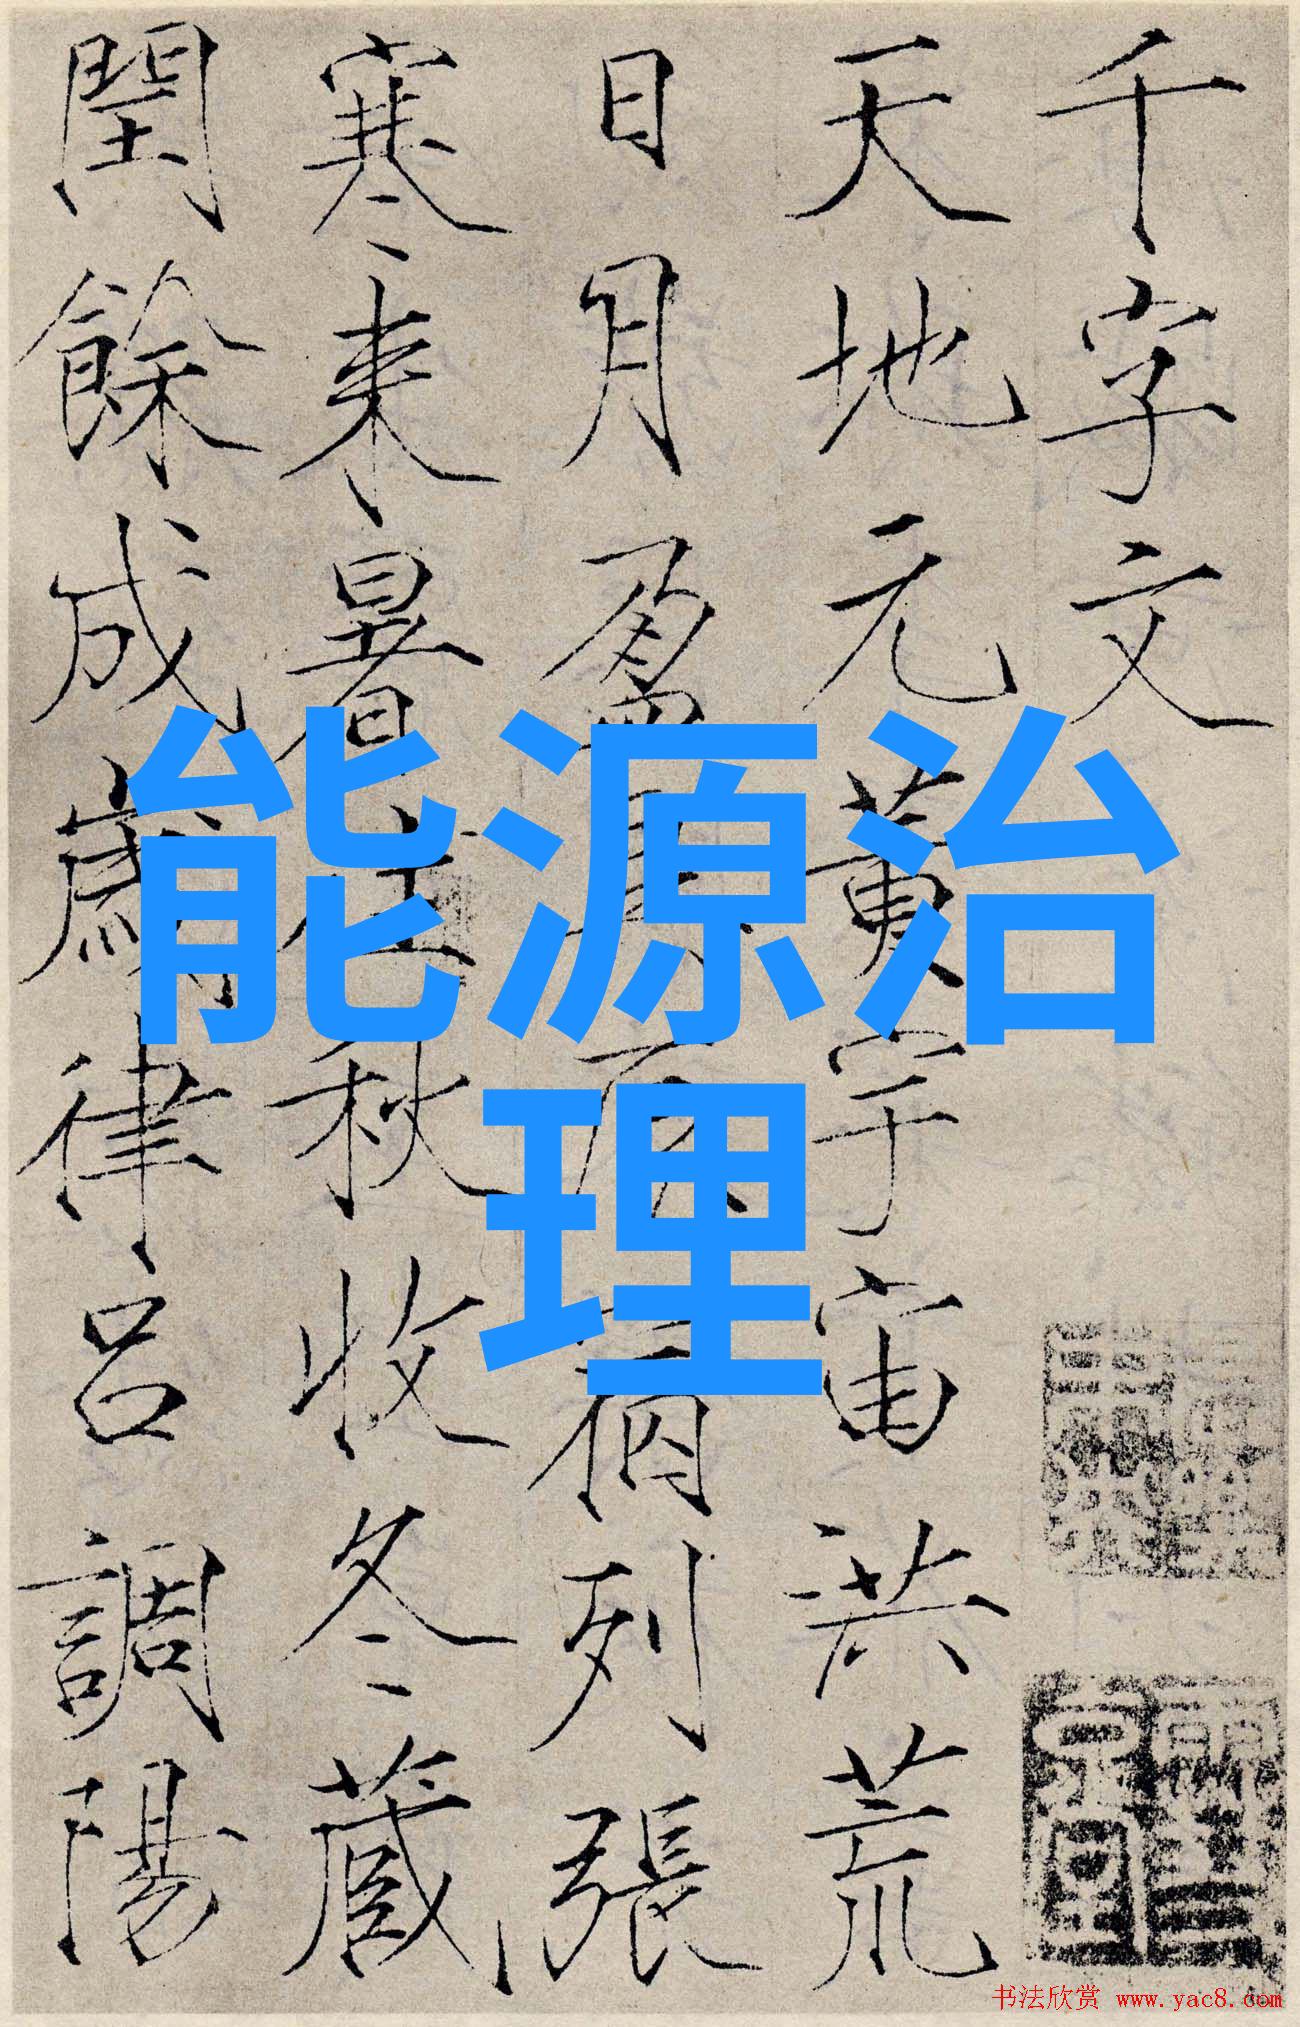 千字文
天地元黄宇宙洪荒
日月盈昃辰宿列張
寒来暑往秋收冬蔵
閏餘成歲律吕調陽
能源治
理
书法欣赏 www.yac8.com